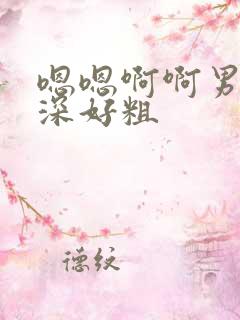 嗯嗯啊啊男
深好粗
德纹